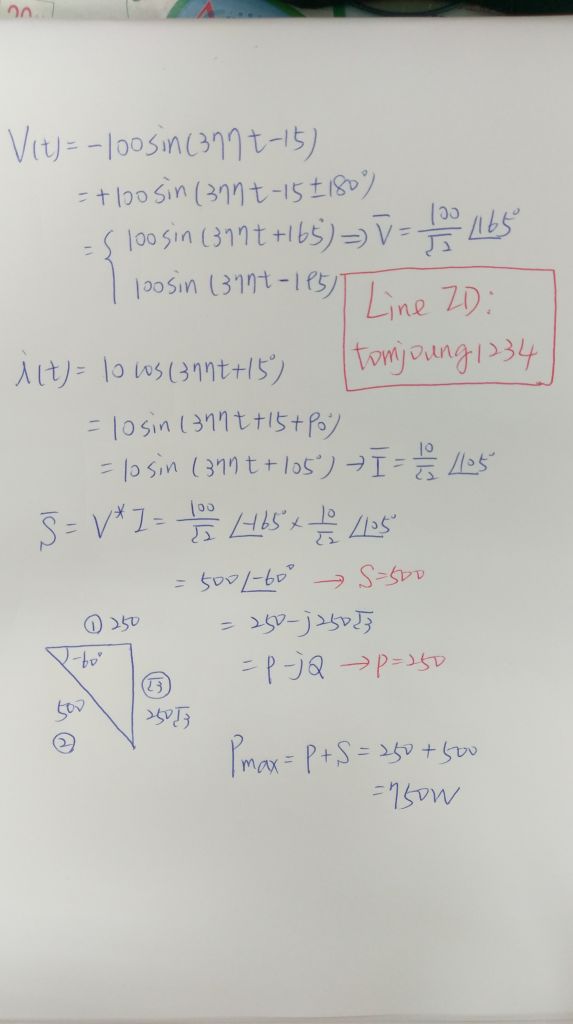 20
V(t) = -100sin(377t-15)
= +100sin(377t-15±180°)
= { 100sin(377t+165°) ⇒ V̄ = 100/√2 ∠165°
100sin(377t-195)
Line ID:
tomjoung1234
i(t) = 10cos(377t+15°)
= 10sin(377t+15+90°)
= 10sin(377t+105°) → Ī = 10/√2 ∠105°
S̄ = V*I = 100/√2 ∠-165° × 10/√2 ∠105°
= 500∠-60° → S=500
① 250
= 250-j250√3
-60°
= P-jQ → P=250
√3
500
250√3
②
Pmax = P+S = 250+500
= 750W